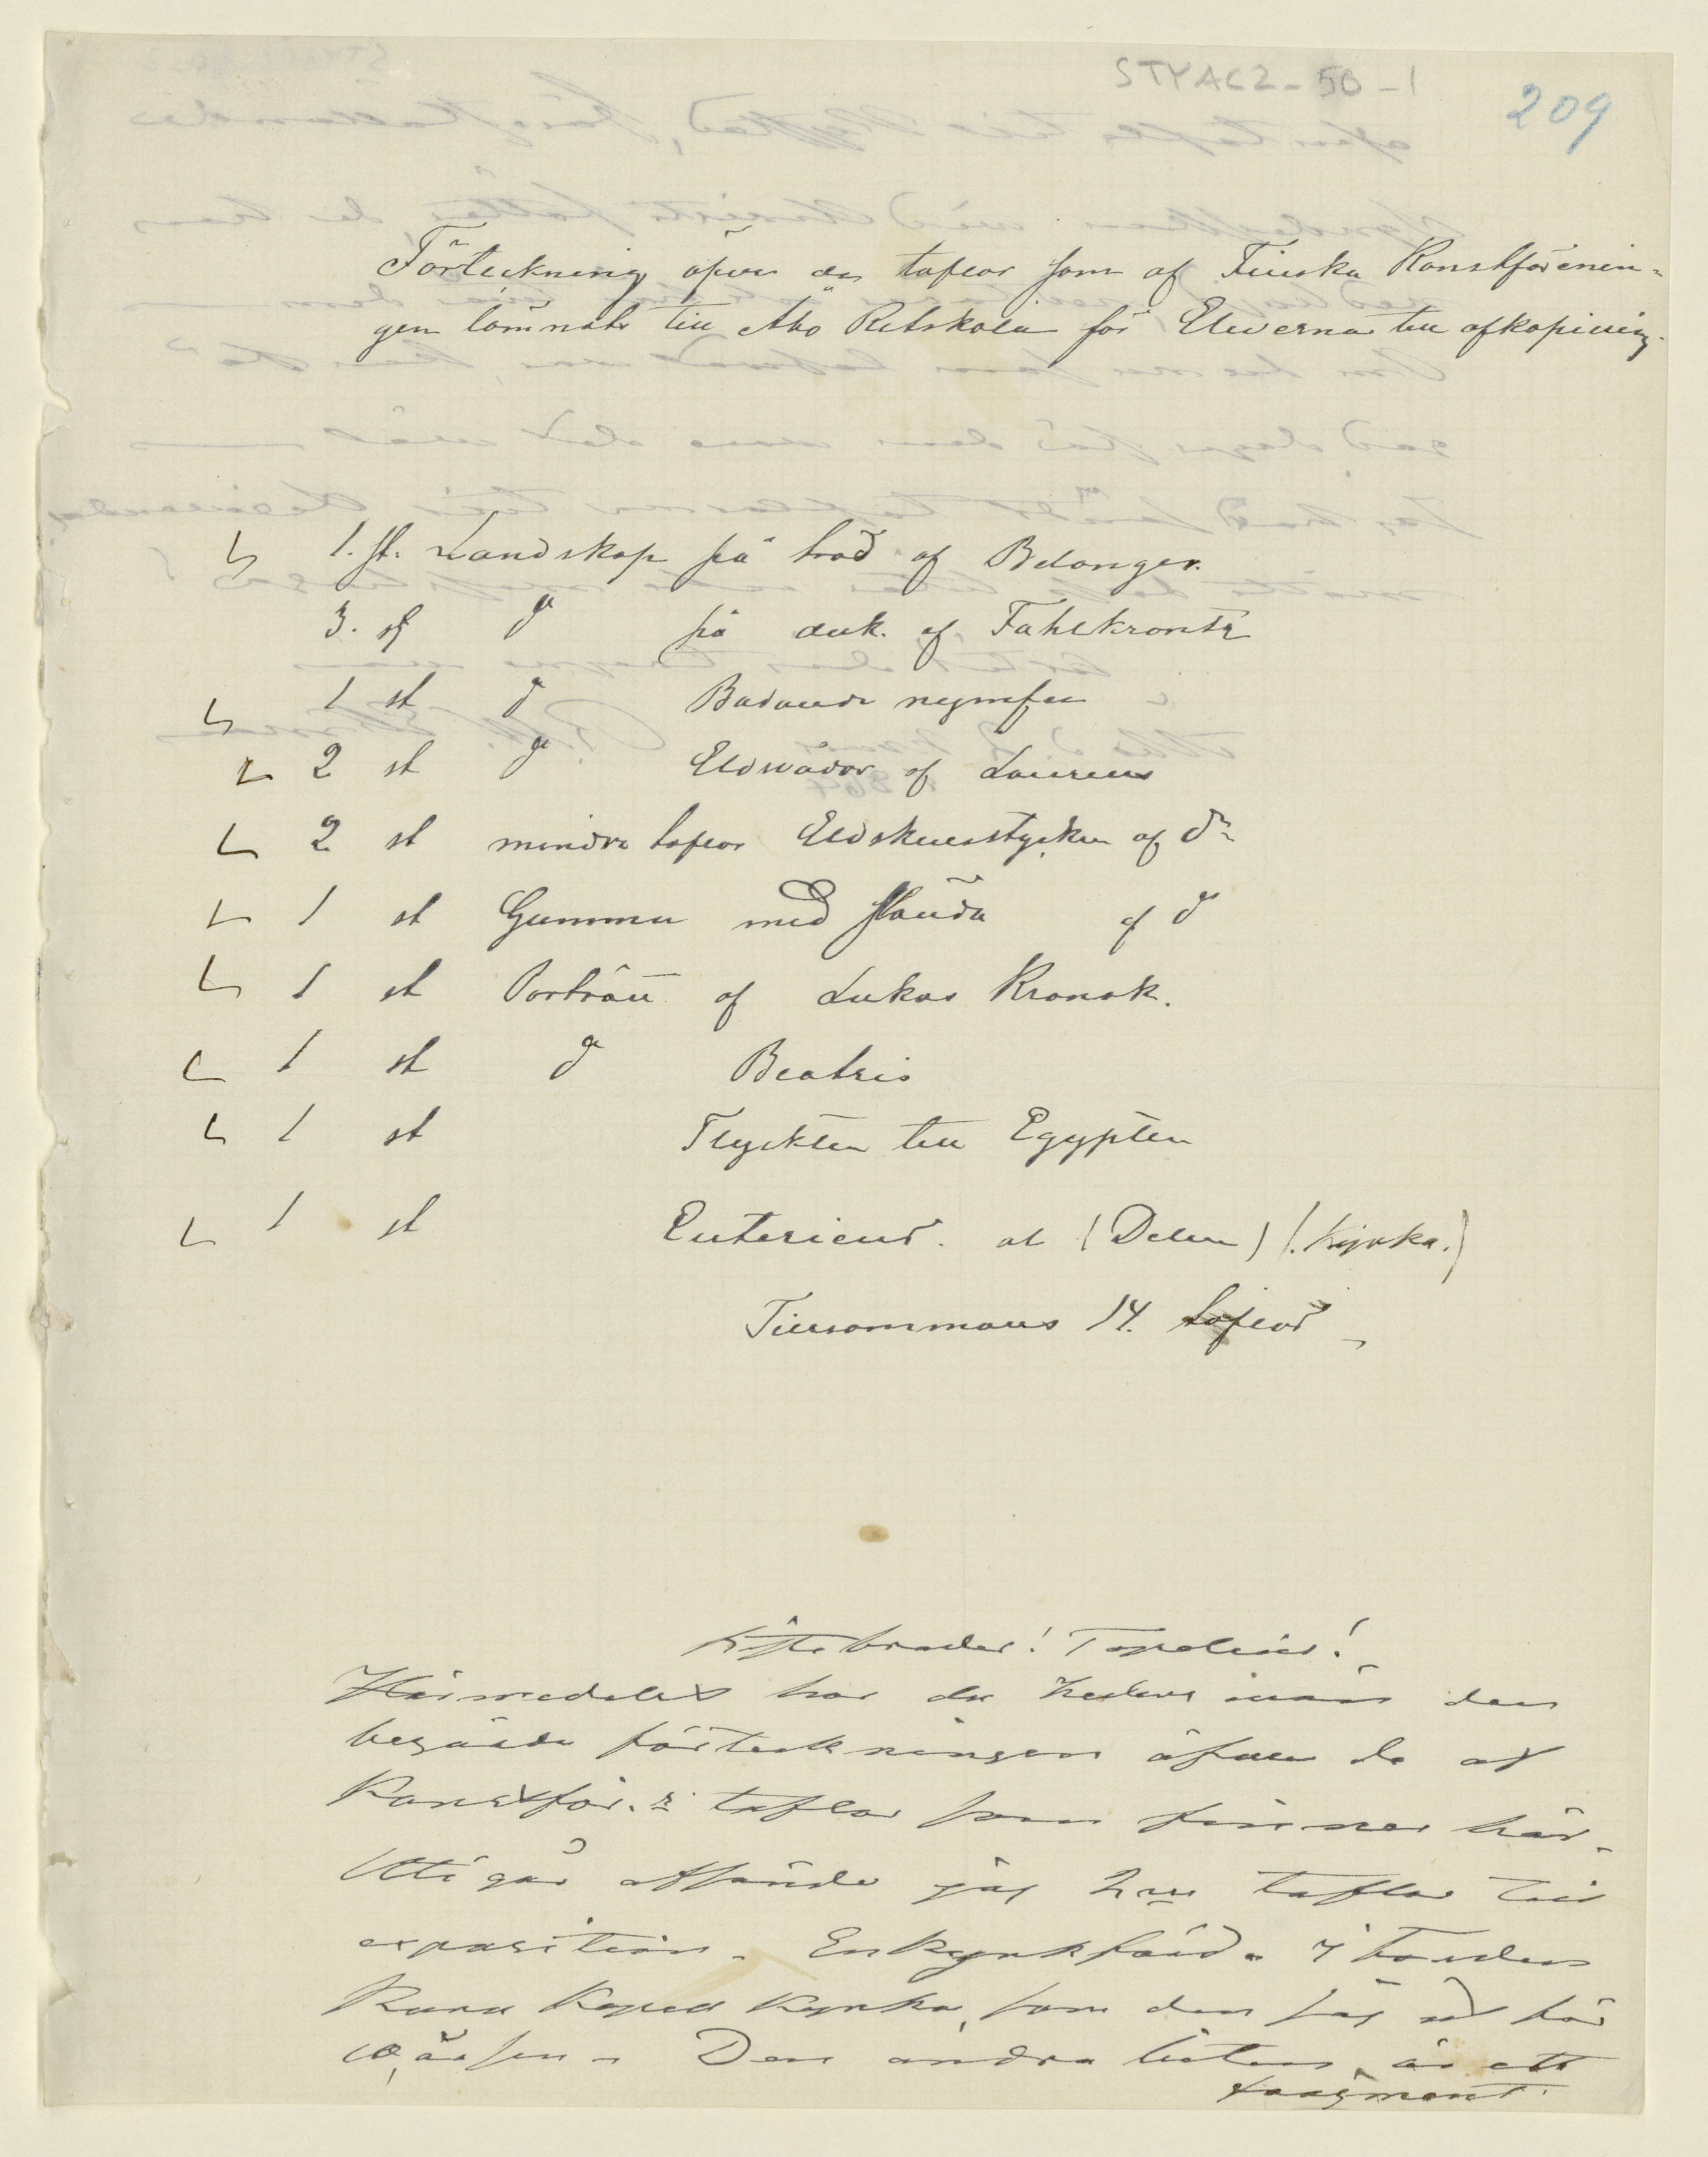 STYAC2-50-1
209
Förteckning öfver de taflor som af Finska Konstförenin=
gen lämnats till Åbo Ritskola för Eleverna till afkopiering.
1. st. Landskap på träd af Belanger.
3. st do på duk. af Fahlkrantz
1 st do Badande nymfer
2 st do Eldsvådor af Laureus
2 st mindre taflor Eldskensstycken af do
1 st Gumma med af do
1 st Porträtt af Lukas Kranak.
1 st do Beatris
1 st Flyckten till Egypten
1 st Enterieur. at (Delen) (. Kyrka.)
Tillsammans 14. taflor
broder! Topelius!
Härmedelst har du den
begärda förteckningen öfver de af
Konstför.s taflor som finnes här.
I går afsände jag 2ne taflor till
exposition. En Kyrkfärd. i
Runa Kapell Kyrka, som den såg ut för
10 år sen. Den andra är ett
fragment.